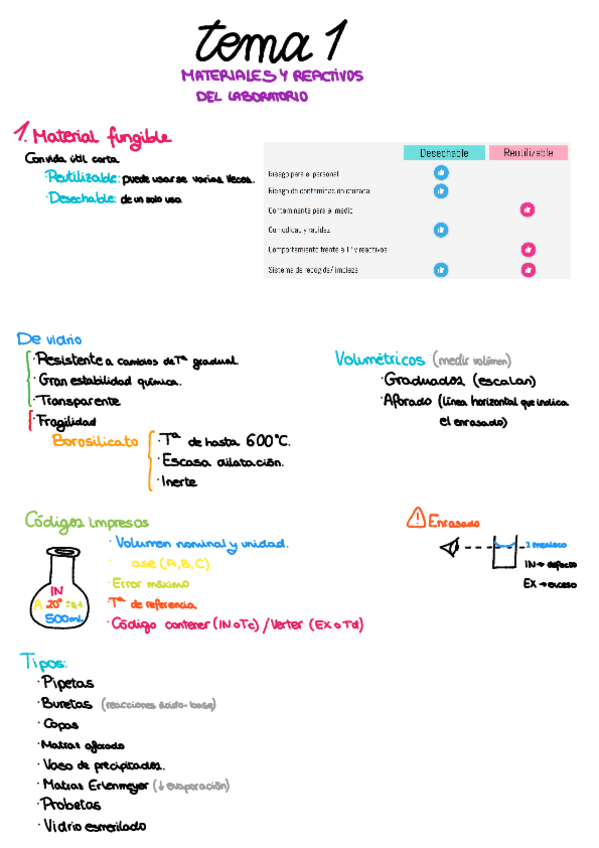 tema 1
MATERIALES Y REACTIVOS
DEL LABORATORIO
1. Material fungible
Con vida útil corta
· Reutilizable: puede usarse varias veces.
· Desechable: de un solo uso
Desechable Reutilizable
Riesgo para el personal
Riesgo de contaminación cruzada
Contaminante para el medio
Comodidad y rapidez
Comportamiento frente a Tª y reactivos
Sistema de recogida/limpieza
De vidrio
· Resistente a cambios de Tª gradual.
· Gran estabilidad química.
· Transparente
· Fragilidad
Borosilicato
· Tª de hasta 600°C.
· Escasa dilatación.
· Inerte
Volumétricos (medir volúmen)
· Graduados (escalan)
· Aforado (línea horizontal que indica
el enrasado)
Códigos impresos
· Volumen nominal y unidad.
· ase (A,B,C)
· Error máximo
· Tª de referencia
· Código contener (IN o Tc) / Verter (EX o Td)
IN
A 20°
500mL
Enrasado
menisco
IN → defecto
EX → exceso
Tipos:
· Pipetas
· Buretas (reacciones ácido-base)
· Copas
· Matraz aforado
· Vaso de precipitados.
· Matraz Erlenmeyer (↓ evaporación)
· Probetas
· Vidrio esmerilado